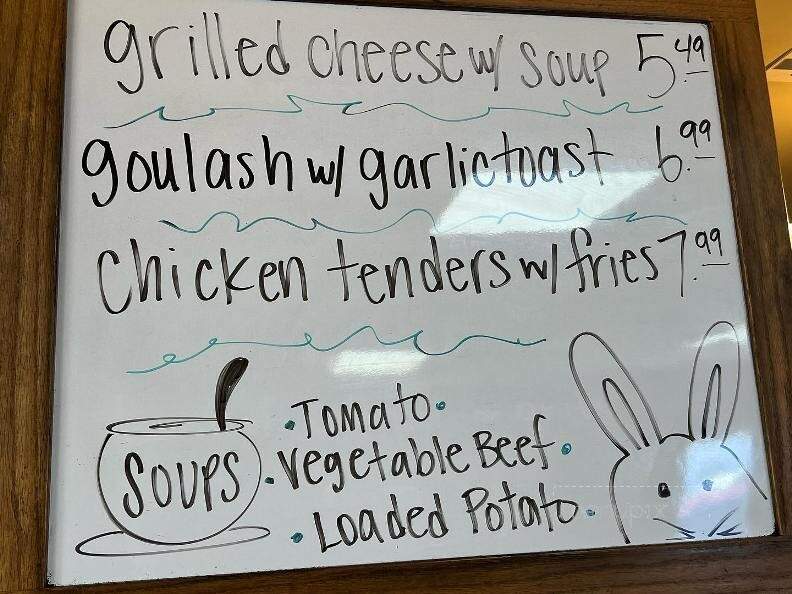 grilled cheese w/ soup 5.49
goulash w/ garlic toast 6.99
Chicken tenders w/ fries 7.99
SOUPS
• Tomato •
• Vegetable Beef •
• Loaded Potato •